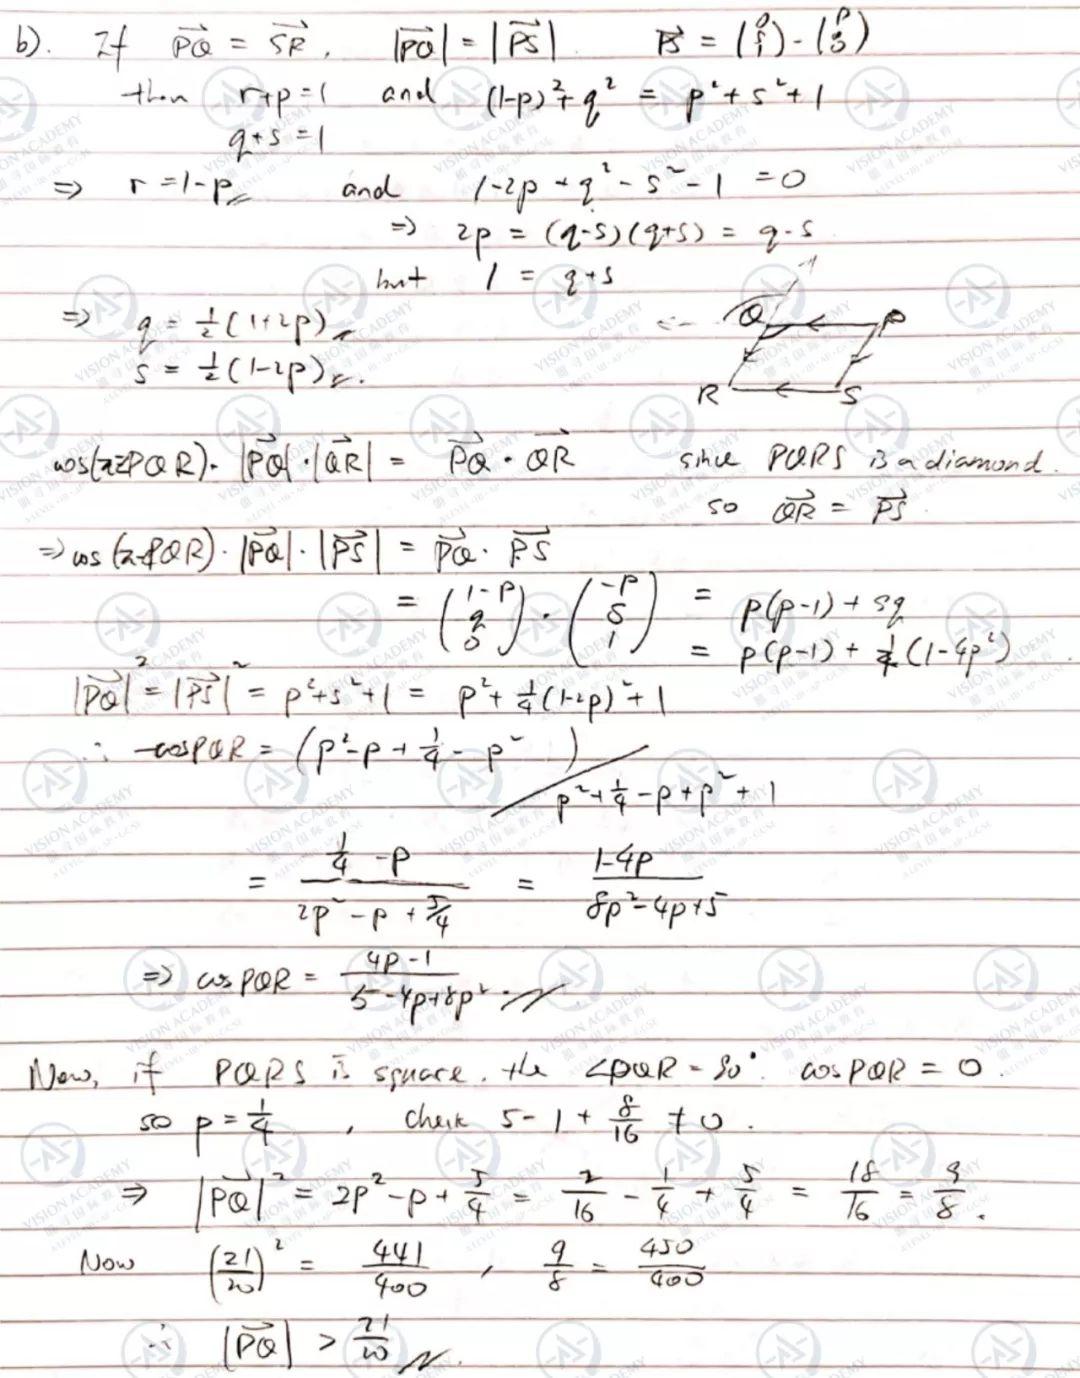 b). If PQ⃗ = SR⃗, |PQ⃗| = |PS⃗| PS⃗ = (0 s 1) - (p 0 0)
then r+p=1 and (1-p)²+q² = p²+s²+1
q+s=1
⇒ r=1-p and 1-2p+q²-s²-1=0
⇒ 2p = (q-s)(q+s) = q-s
but 1 = q+s
⇒ q = ½(1+2p)
s = ½(1-2p).
Q P
R S
cos(π-PQR)·|PQ⃗|·|QR⃗| = PQ⃗·QR⃗ since PQRS is a diamond.
so QR⃗ = PS⃗
⇒ cos(π-PQR)·|PQ⃗|·|PS⃗| = PQ⃗·PS⃗
= (1-p q 0)·(-p s 1) = p(p-1)+sq
= p(p-1)+¼(1-4p²)
|PQ⃗|² = |PS⃗|² = p²+s²+1 = p²+¼(1-2p)²+1
∴ -cosPQR = (p²-p+¼-p²) / p²+¼-p+p²+1
= (¼-p)/(2p²-p+5/4) = (1-4p)/(8p²-4p+5)
⇒ cosPQR = (4p-1)/(5-4p+8p²).
Now, if PQRS is square, the ∠PQR=90°. cosPQR=0.
so p=¼, check 5-1+8/16 ≠0.
⇒ |PQ⃗|² = 2p²-p+5/4 = 2/16-1/4+5/4 = 18/16 = 9/8.
Now (21/20)² = 441/400, 9/8 = 450/400
∴ |PQ⃗| > 21/20.
VISION ACADEMY